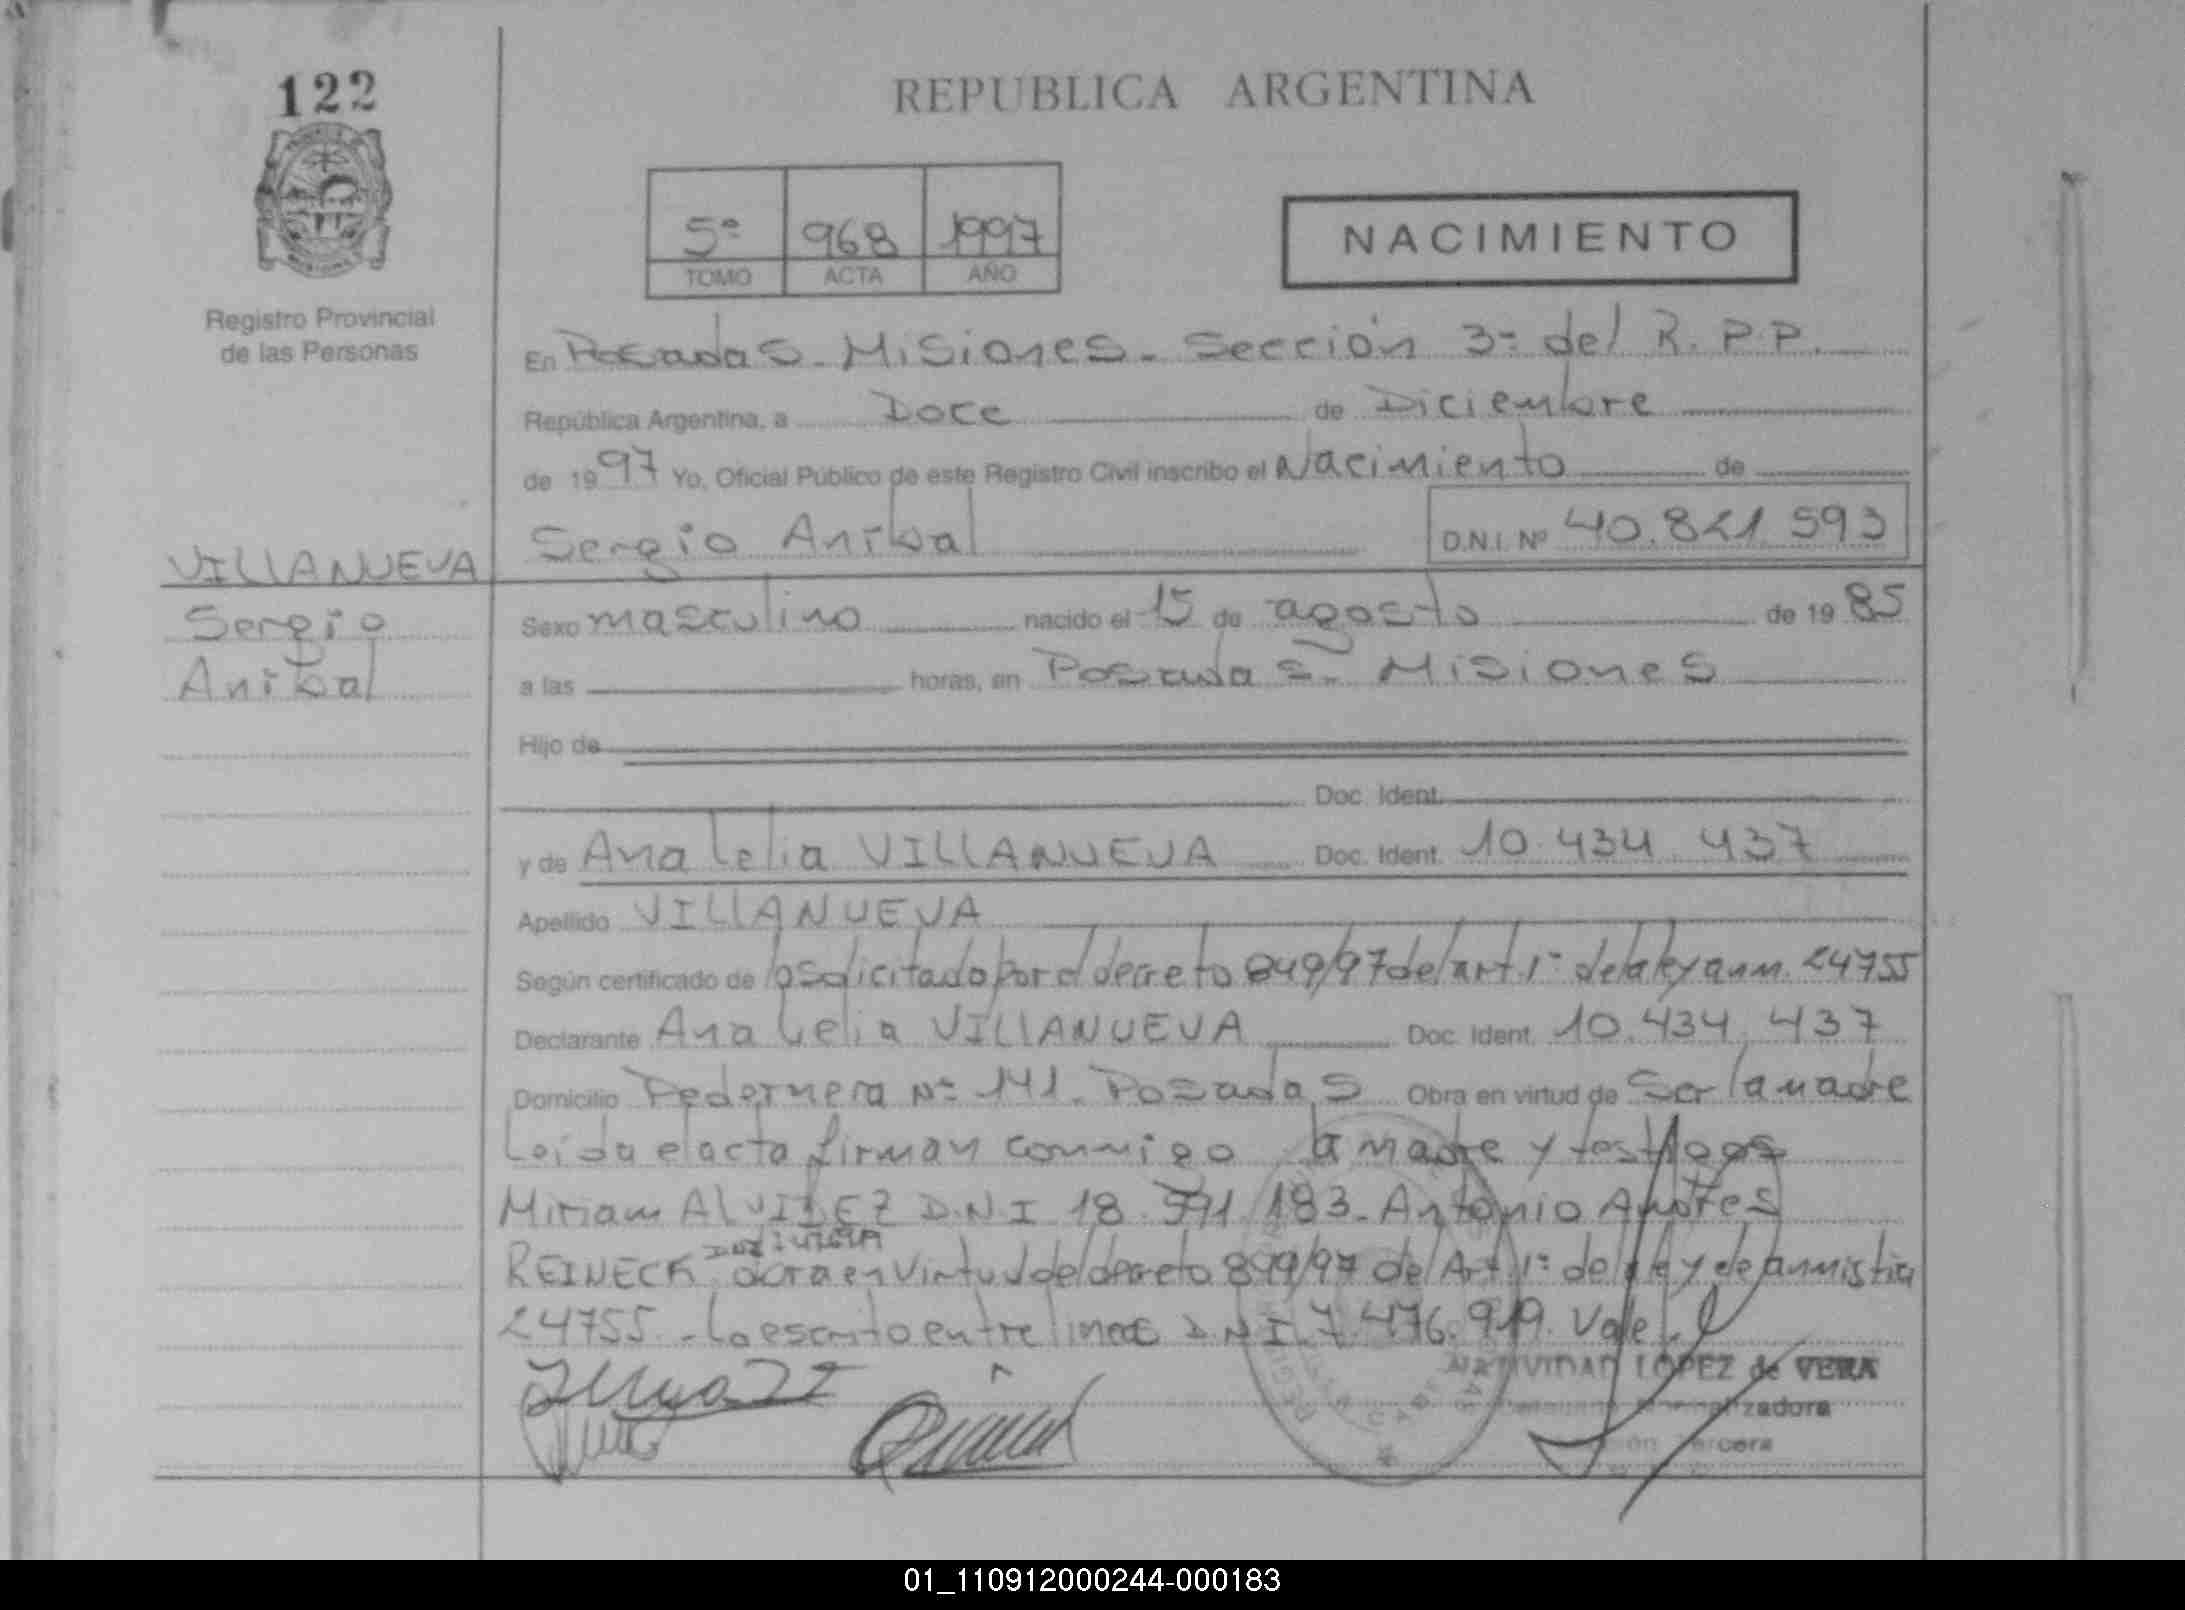 122
REPUBLICA ARGENTINA
5º 968 1997
TOMO ACTA AÑO
NACIMIENTO
Registro Provincial
de las Personas
En Posadas - Misiones - Sección 3ª del R.P.P.
República Argentina, a Doce de Diciembre
de 1997 Yo, Oficial Público de este Registro Civil inscribo el Nacimiento de
Sergio Anibal D.N.I. Nº 40.821.593
VILLANUEVA
Sergio
Anibal
Sexo masculino nacido el 15 de agosto de 1985
a las horas, en Posadas - Misiones
Hijo de
Doc. Ident.
y de Ana Lelia VILLANUEVA Doc. Ident. 10.434.437
Apellido VILLANUEVA
Según certificado de lo solicitado por el decreto 849/97 del art. 1º de la ley anm. 24755
Declarante Ana Lelia VILLANUEVA Doc. Ident. 10.434.437
Domicilio Pedernera Nº 141. Posadas Obra en virtud de Ser la madre
Leída el acta firman conmigo la madre y testigos
Miriam ALVIREZ D.N.I 18.591.183 - Antonio
REINECK en virtud del decreto 849/97 del Art. 1º de la ley de amnistia
24755. - Lo escrito entre lineas D.N.I. 7.476.919. Vale.
NATIVIDAD LOPEZ de VERA
Tercera
01_110912000244-000183